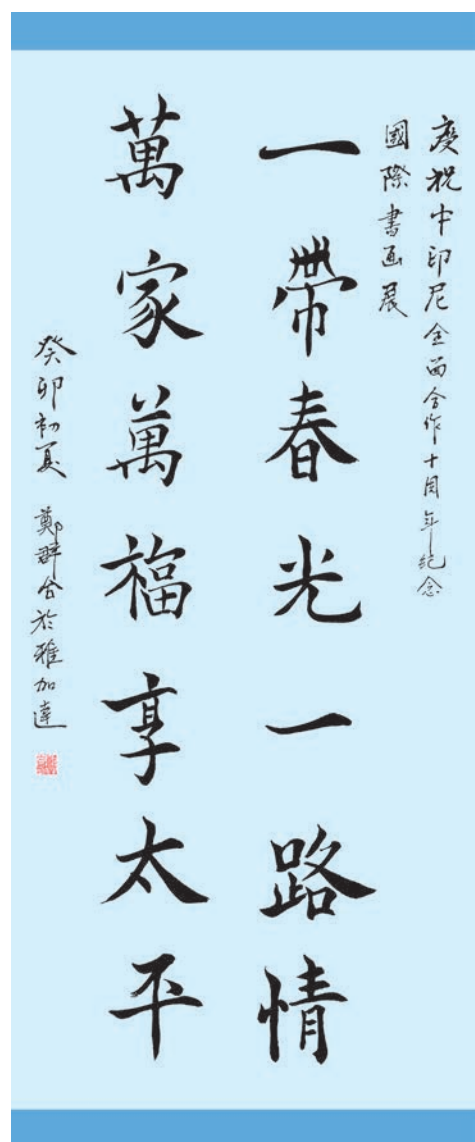 慶祝中印尼全面合作十周年纪念
國際書画展
一帶春光一路情
萬家萬福享太平
癸卯初夏 鄭群合於雅加達